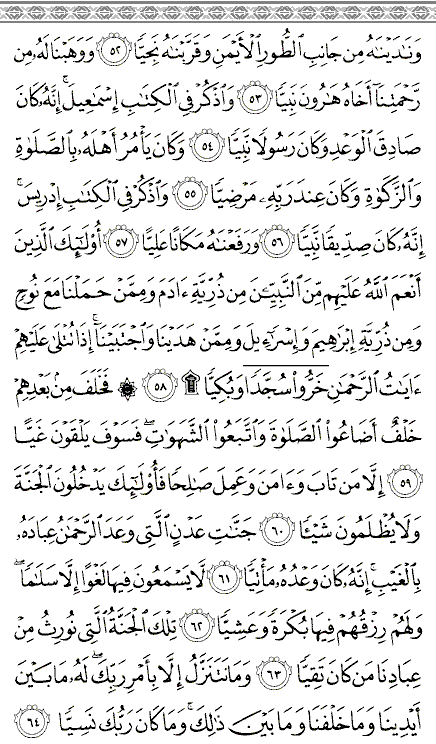 وَنَـٰدَيْنَـٰهُ مِن جَانِبِ ٱلطُّورِ ٱلْأَيْمَنِ وَقَرَّبْنَـٰهُ نَجِيًّا ٥٢ وَوَهَبْنَا لَهُۥ مِن
رَّحْمَتِنَآ أَخَاهُ هَـٰرُونَ نَبِيًّا ٥٣ وَٱذْكُرْ فِى ٱلْكِتَـٰبِ إِسْمَـٰعِيلَ ۚ إِنَّهُۥ كَانَ
صَادِقَ ٱلْوَعْدِ وَكَانَ رَسُولًا نَّبِيًّا ٥٤ وَكَانَ يَأْمُرُ أَهْلَهُۥ بِٱلصَّلَوٰةِ
وَٱلزَّكَوٰةِ وَكَانَ عِندَ رَبِّهِۦ مَرْضِيًّا ٥٥ وَٱذْكُرْ فِى ٱلْكِتَـٰبِ إِدْرِيسَ ۚ
إِنَّهُۥ كَانَ صِدِّيقًا نَّبِيًّا ٥٦ وَرَفَعْنَـٰهُ مَكَانًا عَلِيًّا ٥٧ أُو۟لَـٰٓئِكَ ٱلَّذِينَ
أَنْعَمَ ٱللَّهُ عَلَيْهِم مِّنَ ٱلنَّبِيِّـۧنَ مِن ذُرِّيَّةِ ءَادَمَ وَمِمَّنْ حَمَلْنَا مَعَ نُوحٍ
وَمِن ذُرِّيَّةِ إِبْرَٰهِيمَ وَإِسْرَٰٓءِيلَ وَمِمَّنْ هَدَيْنَا وَٱجْتَبَيْنَآ ۚ إِذَا تُتْلَىٰ عَلَيْهِمْ
ءَايَـٰتُ ٱلرَّحْمَـٰنِ خَرُّوا۟ سُجَّدًا وَبُكِيًّا ۩ ٥٨ ۞ فَخَلَفَ مِنۢ بَعْدِهِمْ
خَلْفٌ أَضَاعُوا۟ ٱلصَّلَوٰةَ وَٱتَّبَعُوا۟ ٱلشَّهَوَٰتِ ۖ فَسَوْفَ يَلْقَوْنَ غَيًّا
٥٩ إِلَّا مَن تَابَ وَءَامَنَ وَعَمِلَ صَـٰلِحًا فَأُو۟لَـٰٓئِكَ يَدْخُلُونَ ٱلْجَنَّةَ
وَلَا يُظْلَمُونَ شَيْـًٔا ٦٠ جَنَّـٰتِ عَدْنٍ ٱلَّتِى وَعَدَ ٱلرَّحْمَـٰنُ عِبَادَهُۥ
بِٱلْغَيْبِ ۚ إِنَّهُۥ كَانَ وَعْدُهُۥ مَأْتِيًّا ٦١ لَّا يَسْمَعُونَ فِيهَا لَغْوًا إِلَّا سَلَـٰمًا ۖ
وَلَهُمْ رِزْقُهُمْ فِيهَا بُكْرَةً وَعَشِيًّا ٦٢ تِلْكَ ٱلْجَنَّةُ ٱلَّتِى نُورِثُ مِنْ
عِبَادِنَا مَن كَانَ تَقِيًّا ٦٣ وَمَا نَتَنَزَّلُ إِلَّا بِأَمْرِ رَبِّكَ ۖ لَهُۥ مَا بَيْنَ
أَيْدِينَا وَمَا خَلْفَنَا وَمَا بَيْنَ ذَٰلِكَ ۚ وَمَا كَانَ رَبُّكَ نَسِيًّا ٦٤